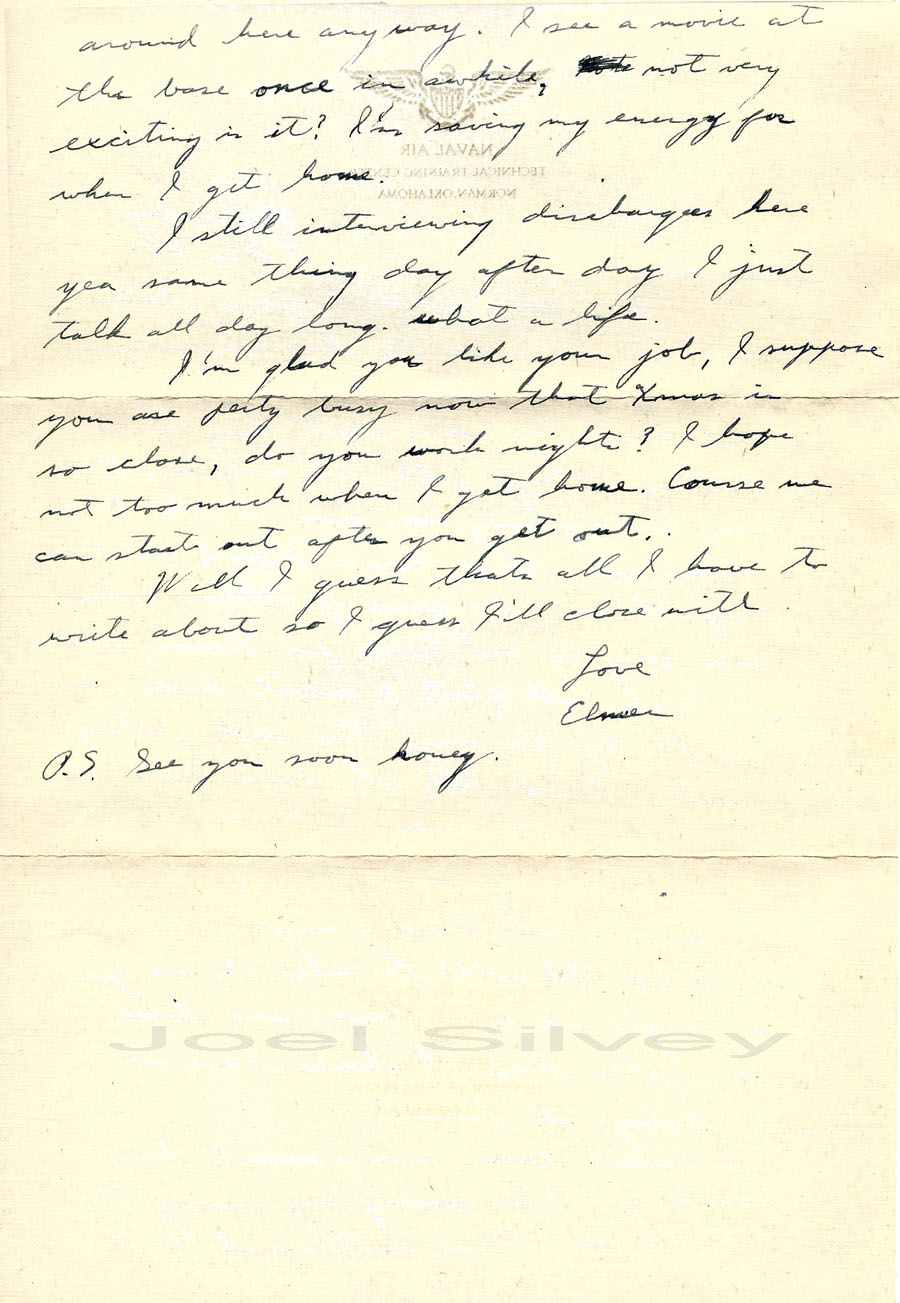 around here anyway. I see a movie at
the base once in awhile, not very
exciting is it? I'm saving my energy for
when I get home.
NAVAL AIR
TECHNICAL TRAINING CENTER
NORMAN, OKLAHOMA
I still interviewing dischargees here
yea same thing day after day I just
talk all day long. what a life.
I'm glad you like your job, I suppose
you are perty busy now that Xmas is
so close, do you work nights? I hope
not too much when I get home. Course we
can start out after you get out..
Well I guess thats all I have to
write about so I guess I'll close with
Love
Elmer
P.S. See you soon honey.
Joel Silvey